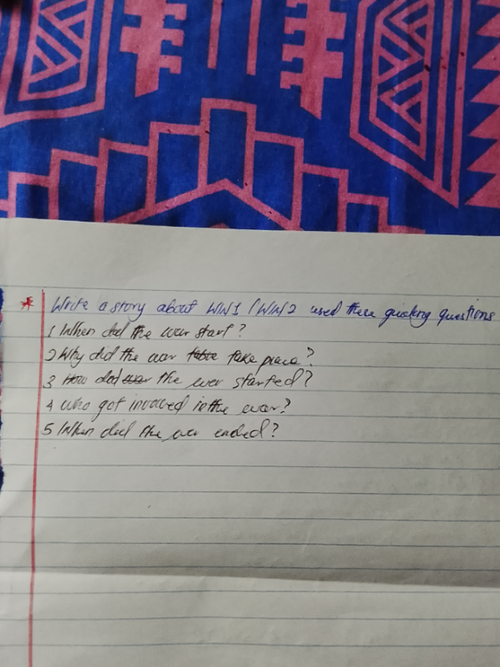 * Write a story about WW1 / WW2 used these guiding questions
1 When did the war start?
2 Why did the war take place?
3 How did the war started?
4 who got involved in the war?
5 When did the war ended?